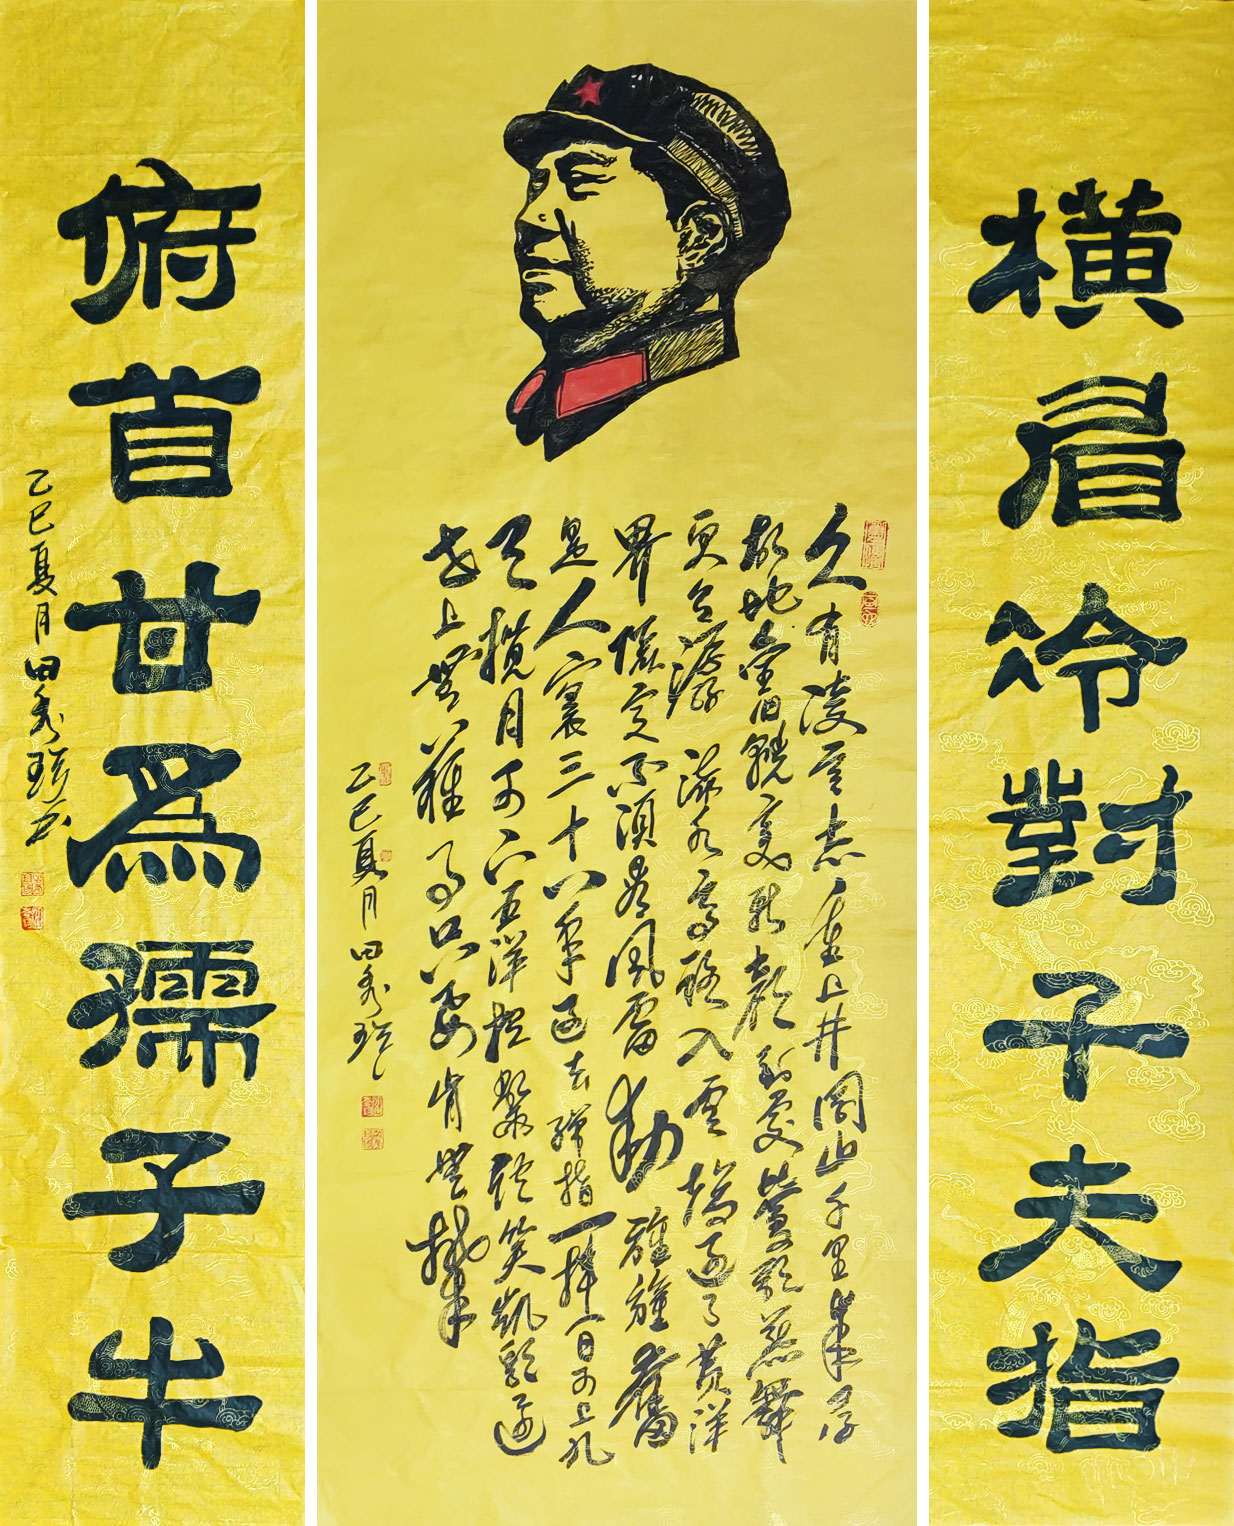 橫眉冷對千夫指
久有凌雲志重上井岡山千里來尋
故地舊貌變新顏到處鶯歌燕舞
更有潺潺流水高路入雲端過了黃洋
界險處不須看風雷動旌旗奮
是人寰三十八年過去彈指一揮間可上九
天攬月可下五洋捉鱉談笑凱歌還
世上無難事只要肯登攀
乙巳夏月田秀
俯首甘爲孺子牛
乙巳夏月田秀